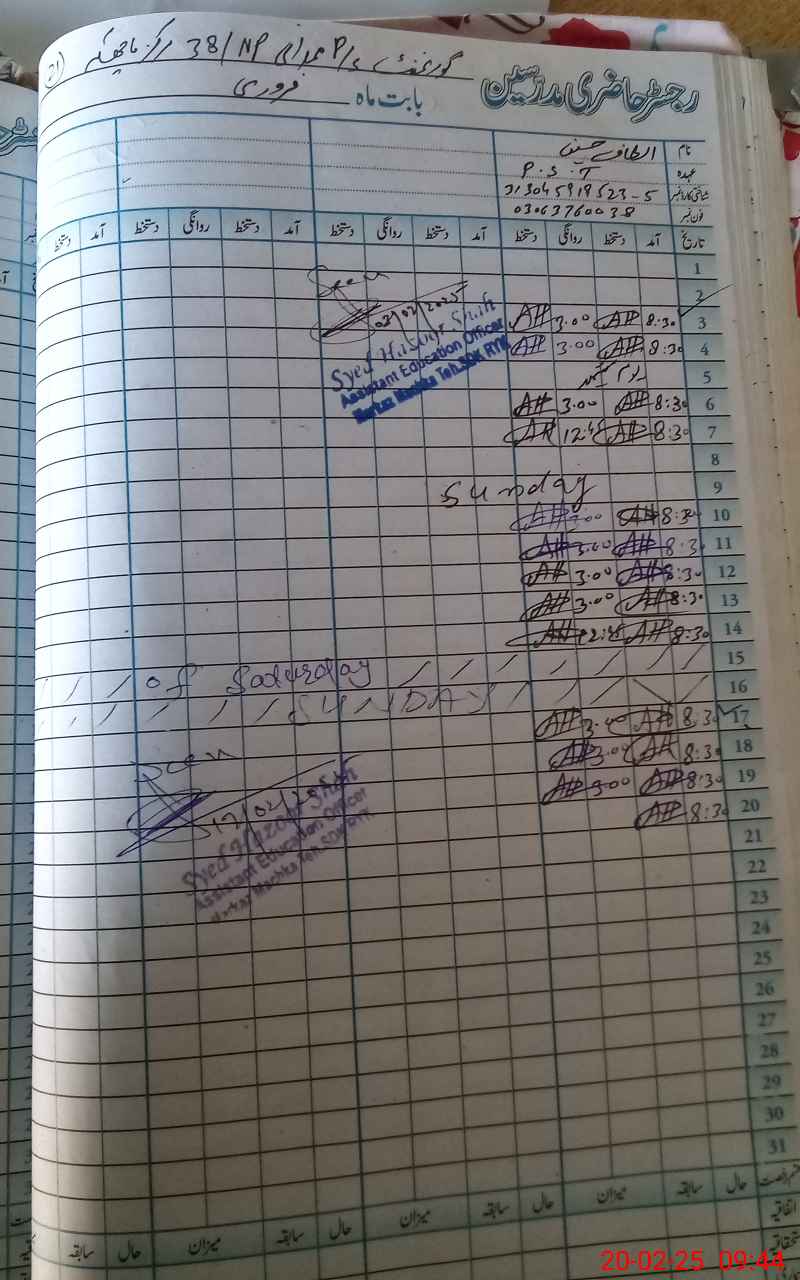 (21) گورنمنٹ P/S 38/NP مرکز ماچھکہ
رجسٹر حاضری مدرسین بابت ماہ فروری
نام الطاف حسین
عہدہ P.S.T
شناختی کارڈ نمبر 313045919523-5
فون نمبر 03063760038
تاریخ آمد دستخط روانگی دستخط آمد دستخط روانگی دستخط آمد دستخط روانگی دستخط آمد دستخط
1
2
3 8:30 AH 3:00 AH
4 8:30 AH 3:00 AH
5
6 8:30 AH 3:00 AH
7 8:30 AH 12:45 AH
8
9 Sunday
10 8:30 AH 3:00 AH
11 8:30 AH 3:00 AH
12 8:30 AH 3:00 AH
13 8:30 AH 3:00 AH
14 8:30 AH 12:45 AH
15 of Saturday
16 SUNDAY
17 8:30 AH 3:00 AH
18 8:30 AH 3:00 AH
19 8:30 AH 3:00 AH
20 8:30 AH
21
22
23
24
25
26
27
28
29
30
31
Seen
03/02/2025
Syed Hasoor Shah
Assistant Education Officer
Markaz Machka Teh.SDK RYK
Seen
17/02/2025
Syed Hazoor Shah
Assistant Education Officer
Markaz Machka Teh.SDK RYK
حال سابقہ میزان حال سابقہ میزان حال سابقہ میزان حال سابقہ
اتفاقیہ
استحقاقیہ
20-02-25 09:44